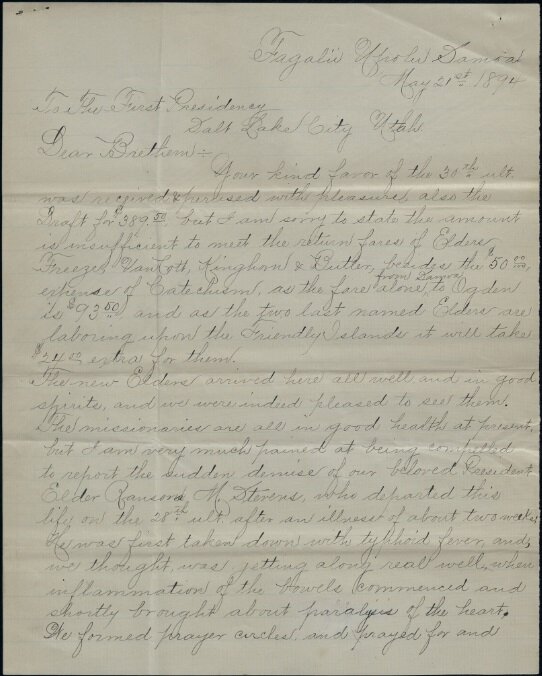 Fagalii Upolu Samoa
May 21st 1894
To The First Presidency
Salt Lake City Utah
Dear Brethern:-
Your kind favor of the 30th ult.
was received & perused with pleasure, also the
Draft for $389.50 but I am sorry to state the amount
is insufficient to meet the return fares of Elders
Freeze, VanCott, Kinghorn & Butler, besides the $50.00
expense of Catechism, as the fare alone from Samoa to Ogden
is $93.50, and as the two last named Elders are
laboring upon the Friendly Islands it will take
$24.00 extra for them.
The new Elders arrived here all well and in good
spirits, and we were indeed pleased to see them.
The missionaries are all in good health at present,
but I am very much pained at being compelled
to report the sudden demise of our beloved President
Elder Ransom M. Stevens, who departed this
life on the 28th ult. after an illness of about two weeks;
He was first taken down with typhoid fever, and,
we thought, was getting along real well, when
inflammation of the bowels commenced and
shortly brought about paralysis of the heart.
We formed prayer circles, and prayed for and